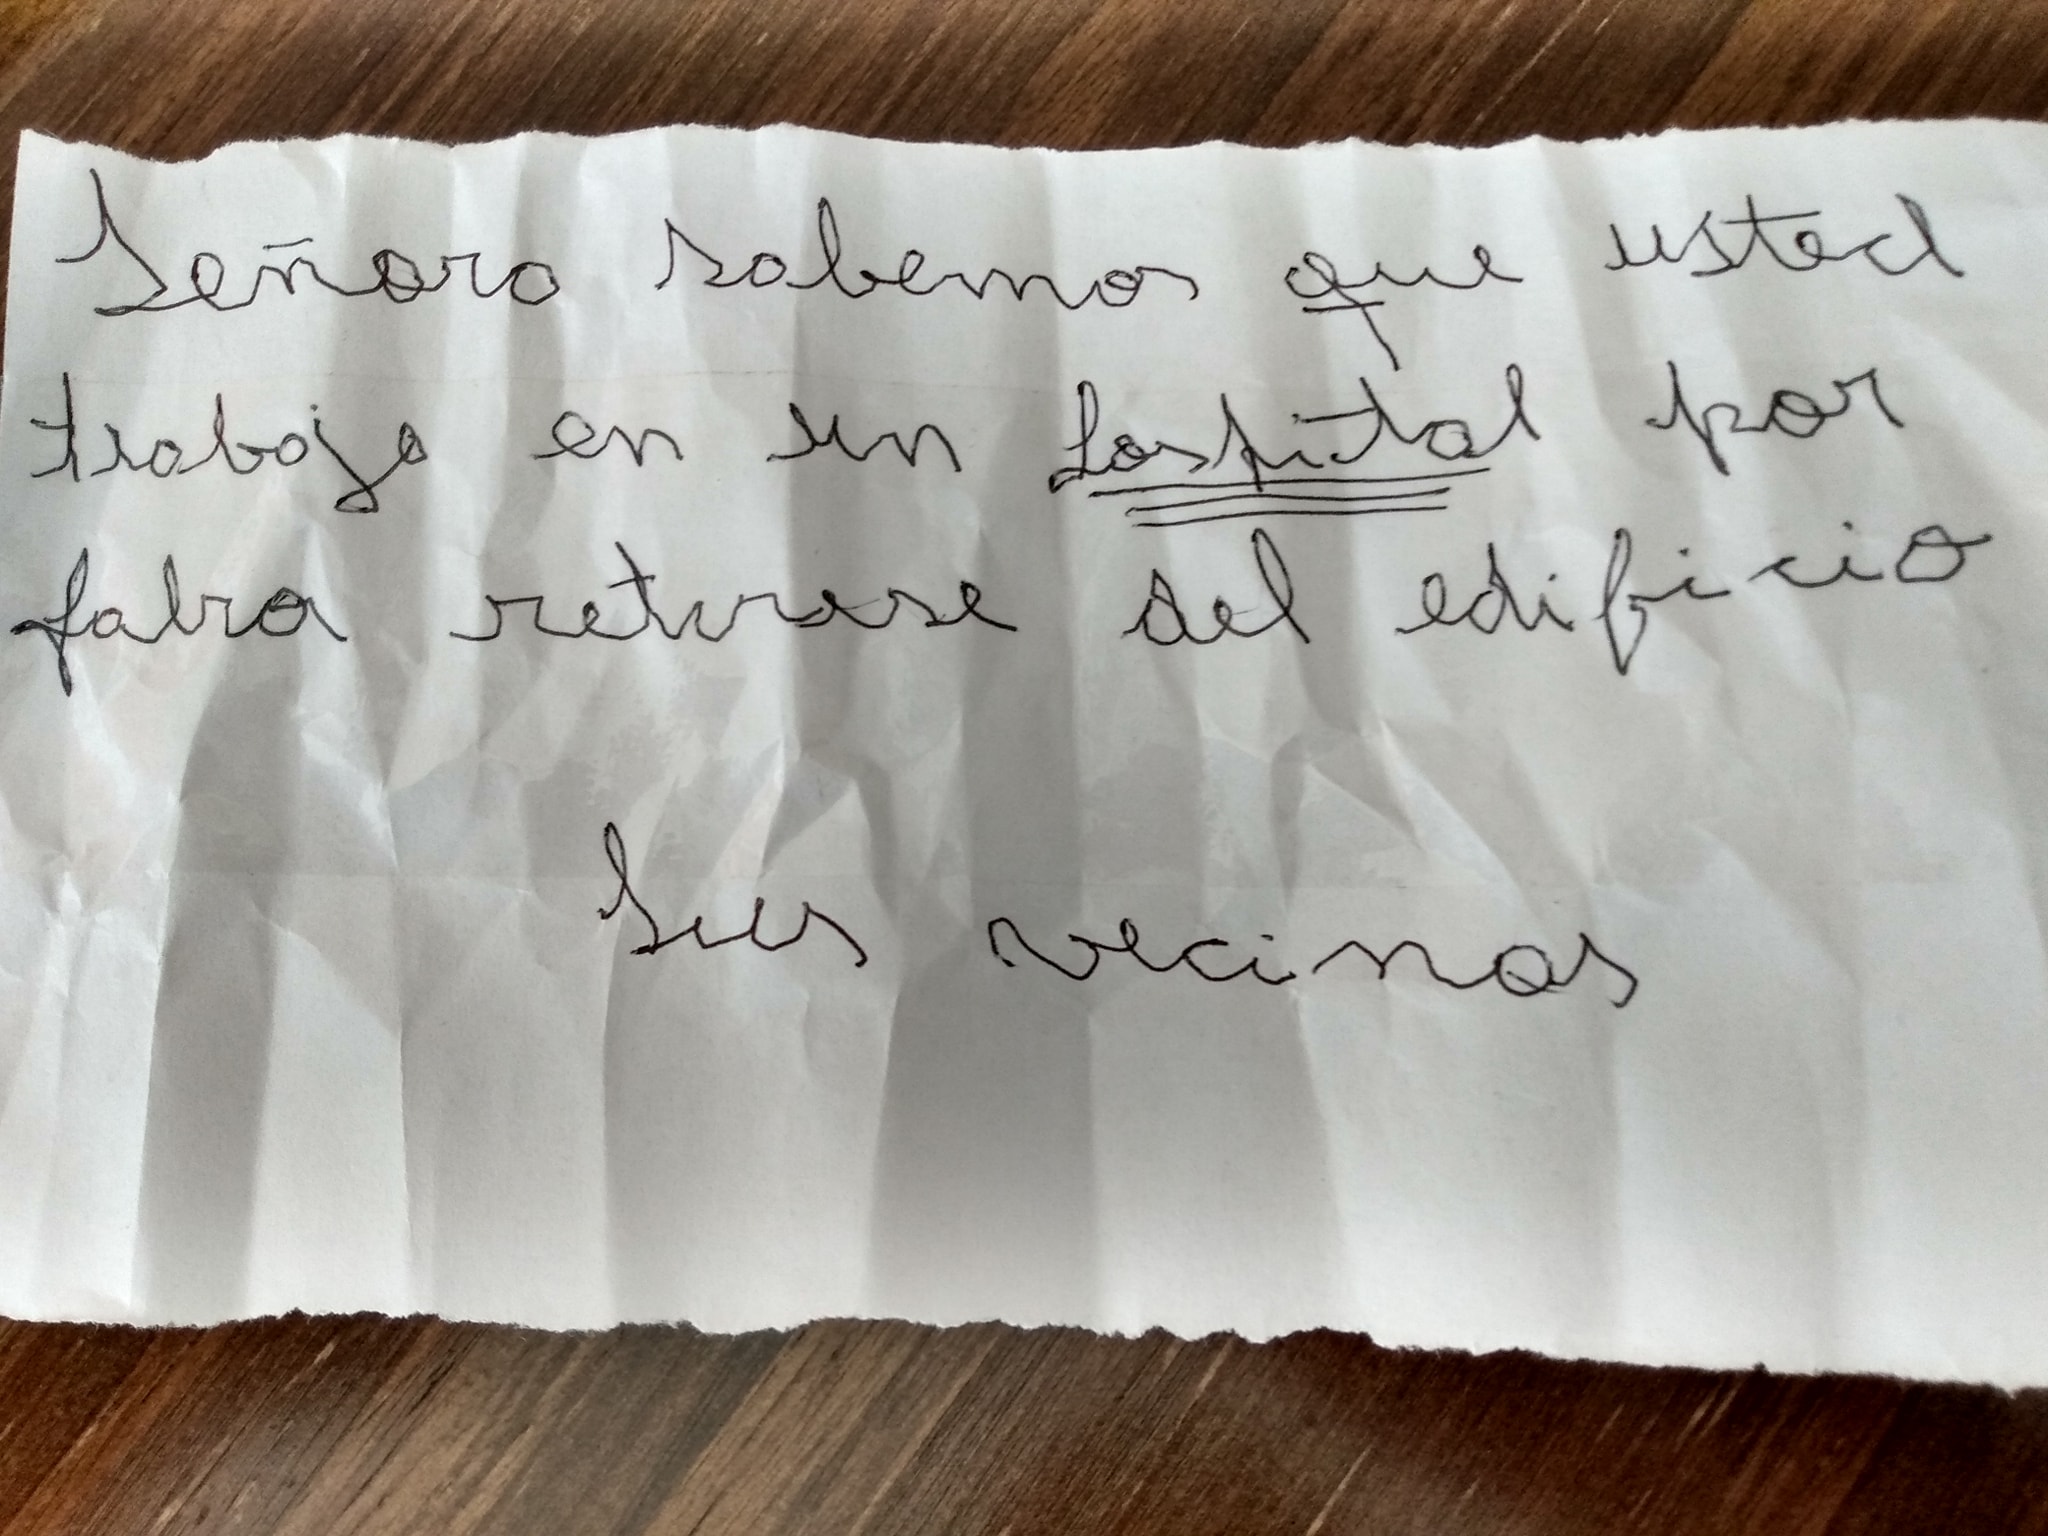 Señora sabemos que usted
trabaja en un hospital por
fabro retirese del edificio
Sus vecinos